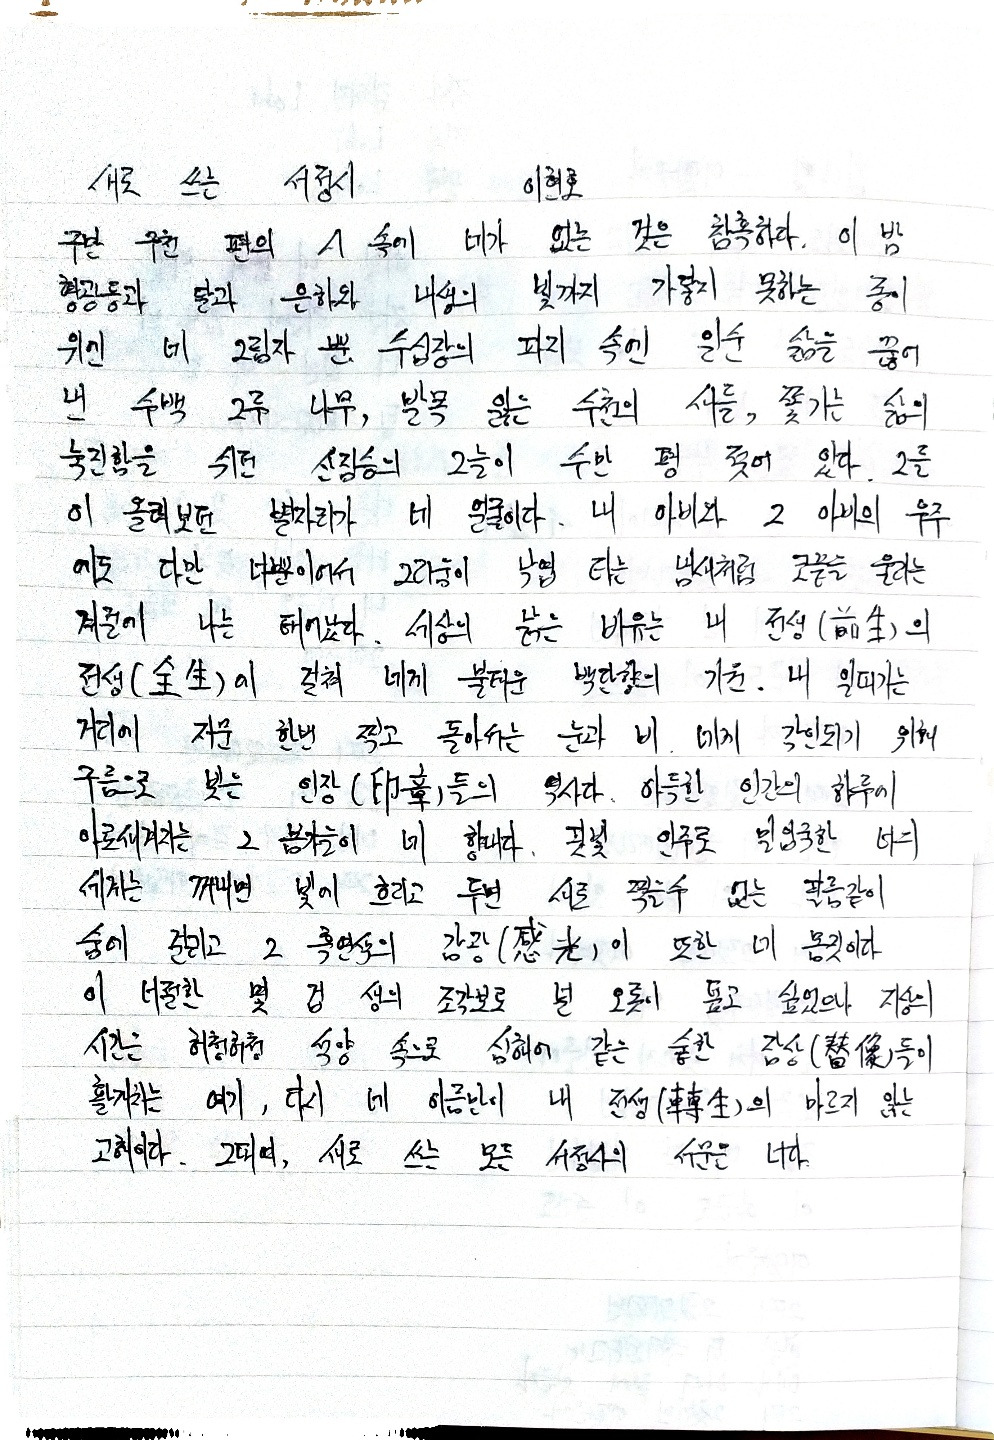 새로 쓰는 서정시 이현호
구만 구천 편의 시 속에 네가 없는 것은 참혹하다. 이 밤
형광등과 달과 은하와 내생의 빛까지 가닿지 못하는 종이
위엔 네 그림자 뿐 수십장의 파지 속엔 일순 삶을 끊어
낸 수백 그루 나무, 발목 잃은 수천의 새들, 쫓기는 삶의
눅진함을 식히던 산짐승의 그늘이 수만 평 젖어 있다. 그들
이 올려보던 별자리가 네 얼굴이다. 내 아비와 그 아비의 우주
에도 다만 너뿐이어서 그리움이 낙엽 타는 냄새처럼 코끝을 울리는
계절에 나는 태어났다. 세상의 붉은 비유는 내 전생(前生)의
전생(全生)이 걸쳐 네게 불태운 백단향의 기운. 내 일대기는
거리에 자문 한번 찍고 돌아서는 눈과 비. 네게 각인되기 위해
구름으로 빚는 인장(印章)들의 역사다. 아득한 인간의 하루에
아로새겨지는 그 봄가을이 네 향내다. 풀빛 인주로 밀입국한 너의
세치는 꺼내면 빛에 흐리고 두면 새로 찍을수 없는 필름같이
숨에 걸리고 그 흑연색의 감광(感光)이 또한 네 몸짓이다
이 너절한 몇 겁 생의 조각보로 널 오롯이 품고 싶었으나 지상의
시간은 허청허청 석양 속으로 심해어 같은 숱한 잠상(潛像)들이
활개치는 여기, 다시 네 이름만이 내 전생(轉生)의 마르지 않는
고해이다. 그대여, 새로 쓰는 모든 서정시의 서문은 너다.